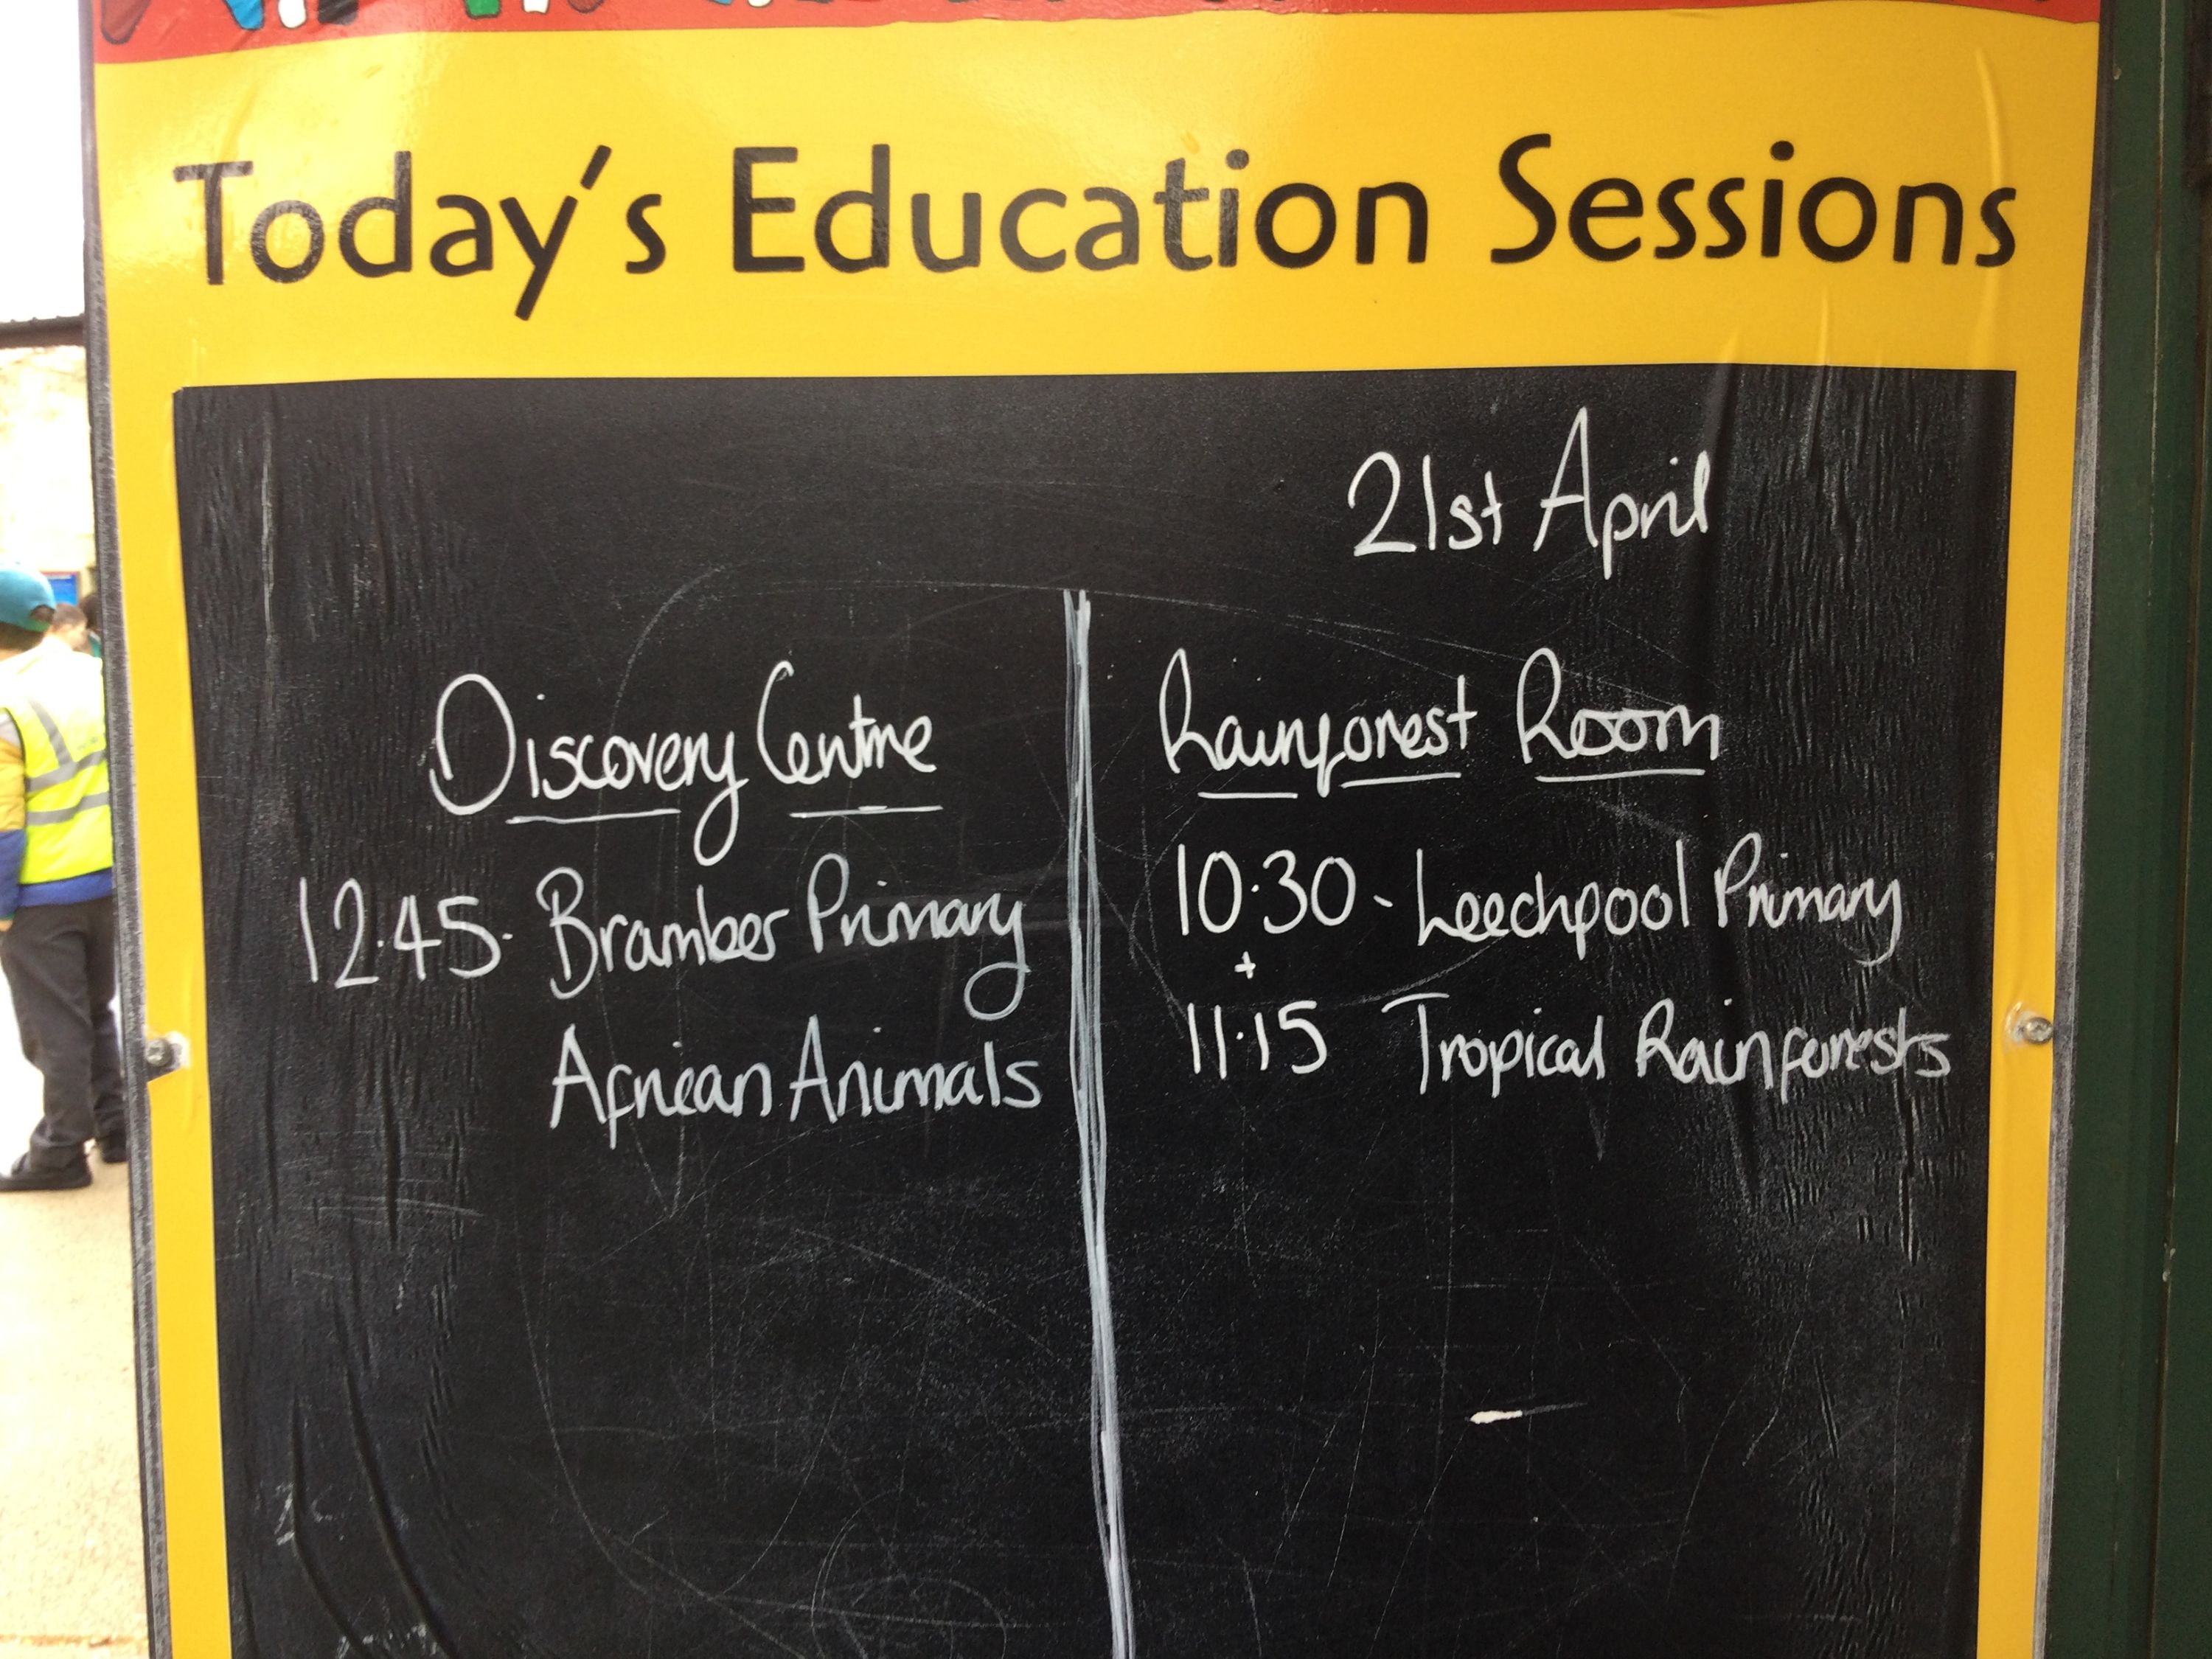 Today's Education Sessions
21st April
Discovery Centre
12.45. Bramber Primary
African Animals
Rainforest Room
10.30 - Leechpool Primary
+
11.15 Tropical Rainforests